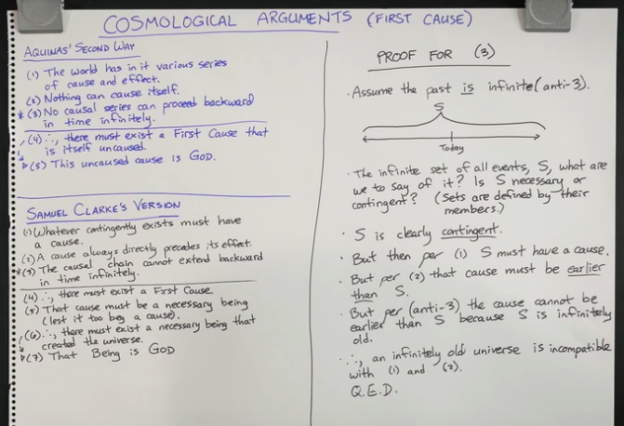 COSMOLOGICAL ARGUMENTS (FIRST CAUSE)
AQUINAS' SECOND WAY
(1) The world has in it various series
of cause and effect.
(2) Nothing can cause itself.
* (3) No causal series can proceed backward
in time infinitely.
(4) ∴, there must exist a First Cause that
is itself uncaused.
(5) This uncaused cause is GOD.
SAMUEL CLARKE'S VERSION
(1) Whatever contingently exists must have
a cause.
(2) A cause always directly precedes its effect.
*(3) The causal chain cannot extend backward
in time infinitely.
(4) ∴, there must exist a First Cause
(5) That cause must be a necessary being
(lest it too beg a cause).
(6) ∴, there must exist a necessary being that
created the universe.
(7) That Being is GOD
PROOF FOR (3)
· Assume the past is infinite (anti-3).
S
Today
· The infinite set of all events, S, what are
we to say of it? Is S necessary or
contingent? (Sets are defined by their
members.)
· S is clearly contingent.
· But then per (1) S must have a cause.
· But per (2) that cause must be earlier
than S.
· But per (anti-3) the cause cannot be
earlier than S because S is infinitely
old.
∴, an infinitely old universe is incompatible
with (1) and (2).
Q.E.D.